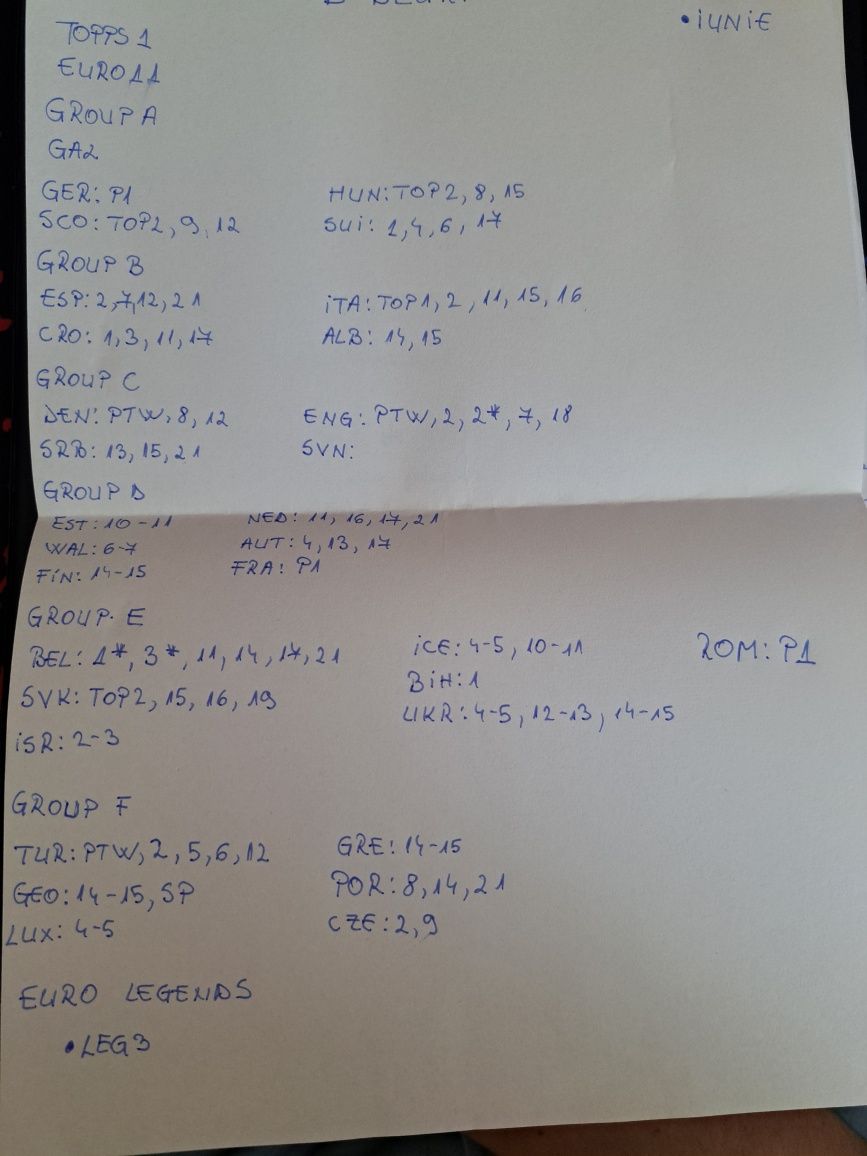 • iUNiE
TOPPS 1
EURO11
GROUP A
GA2
GER: P1 HUN: TOP2, 8, 15
SCO: TOP2, 9, 12 SUi: 1, 4, 6, 17
GROUP B
ESP: 2, 7, 12, 21 iTA: TOP1, 2, 11, 15, 16
CRO: 1, 3, 11, 17 ALB: 14, 15
GROUP C
DEN: PTW, 8, 12 ENG: PTW, 2, 2*, 7, 18
SRB: 13, 15, 21 SVN:
GROUP D
EST: 10-11 NED: 11, 16, 17, 21
WAL: 6-7 AUT: 4, 13, 17
FiN: 14-15 FRA: P1
GROUP E
BEL: 1*, 3*, 11, 14, 17, 21 iCE: 4-5, 10-11 ROM: P1
SVK: TOP2, 15, 16, 19 BiH: 1
iSR: 2-3 UKR: 4-5, 12-13, 14-15
GROUP F
TUR: PTW, 2, 5, 6, 12 GRE: 14-15
GEO: 14-15, SP POR: 8, 14, 21
LUX: 4-5 CZE: 2, 9
EURO LEGENDS
• LEG3